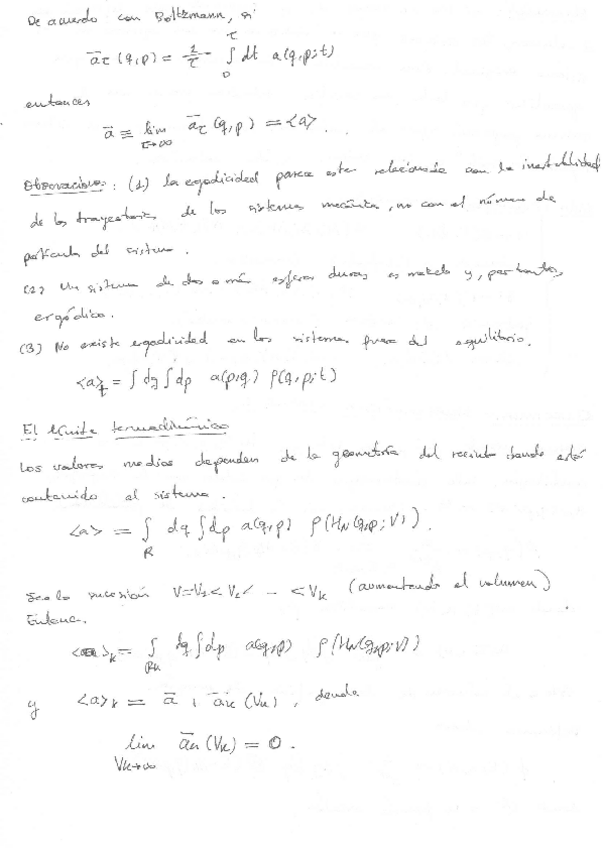 De acuerdo con Boltzmann, si
ā_τ (q,p) = 1/τ ∫_0^τ dt a(q,p;t)
entonces
ā ≡ lim_{τ→∞} ā_τ(q,p) = <a>.
Observaciones: (1) la ergodicidad parece estar relacionada con la inestabilidad
de las trayectorias de los sistemas mecánicos, no con el número de
partículas del sistema.
(2) Un sistema de dos o más esferas duras es y, por tanto,
ergódico.
(3) No existe ergodicidad en los sistemas fuera del equilibrio.
<a>_t = ∫dq ∫dp a(p,q) ρ(q,p;t)
El límite termodinámico
Los valores medios dependen de la geometría del recinto donde está
contenido el sistema.
<a> = ∫_R dq ∫dp a(q,p) ρ(H_N(q,p;V)).
Sea la sucesión V=V_1<V_2< … <V_k (aumentando el volumen)
Entonces.
<a>_k = ∫_{R_k} dq ∫dp a(q,p) ρ(H_N(q,p;V))
y <a>_k = ā + ā_k (V_k), donde
lim_{V_k→∞} ā_k (V_k) = 0.